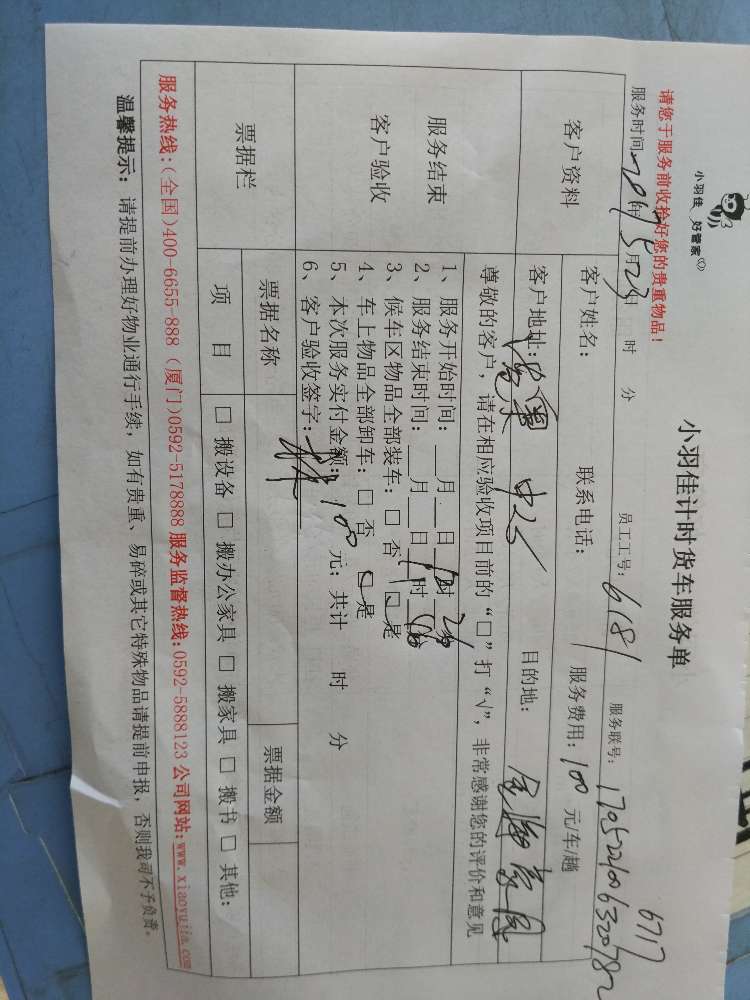 小羽佳 好管家
小羽佳计时货车服务单
请您于服务前收拾好您的贵重物品！
服务联号：
6717
服务时间 2017年5月24日 时 分 员工工号：6181
客户资料
客户姓名： 联系电话： 服务费用：100 元/车/趟
客户地址： 中心 目的地：
服务结束
客户验收
尊敬的客户，请在相应验收项目前的“□”打“√”，非常感谢您的评价和意见
1、服务开始时间：__月__日 时 分
2、服务结束时间：__月__日 时 分
3、候车区物品全部装车：□ 否 □ 是
4、车上物品全部卸车：□ 否 □ 是
5、本次服务实付金额：100 元；共计 时 分
6、客户验收签字：
票据栏
票据名称 票据金额
项 目 □ 搬设备 □ 搬办公家具 □ 搬家具 □ 搬书 □ 其他：
服务热线：(全国)400-6655-888 (厦门)0592-5178888 服务监督热线：0592-5888123 公司网站：www.xiaoyujia.com
温馨提示：请提前办理好物业通行手续，如有贵重、易碎或其它特殊物品请提前申报，否则我司不予负责。